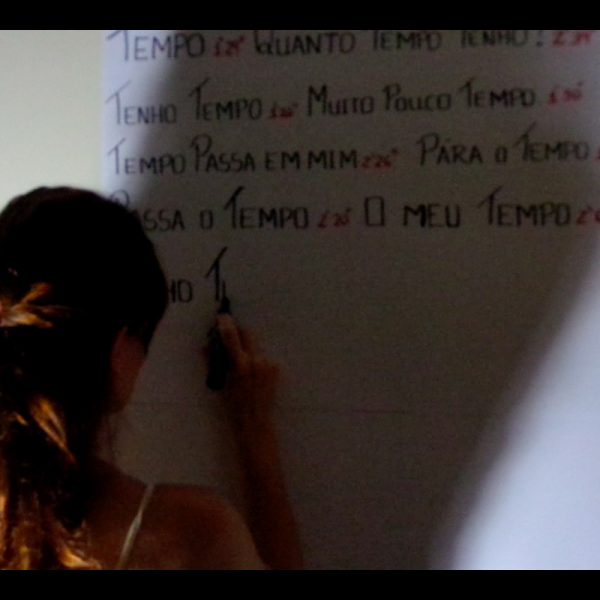 TEMPO QUANTO TEMPO TENHO?
TENHO TEMPO MUITO POUCO TEMPO
TEMPO PASSA EM MIM PÁRA O TEMPO
PASSA O TEMPO O MEU TEMPO
HO T